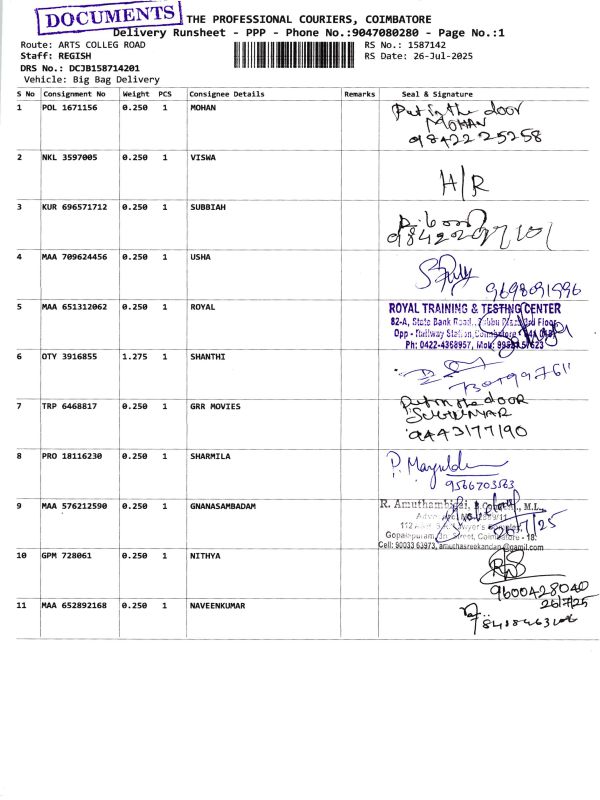 DOCUMENTS
THE PROFESSIONAL COURIERS, COIMBATORE
Delivery Runsheet - PPP - Phone No.:9047080280 - Page No.:1
Route: ARTS COLLEG ROAD
RS No.: 1587142
Staff: REGISH
RS Date: 26-Jul-2025
DRS No.: DCJB158714201
Vehicle: Big Bag Delivery
S No Consignment No Weight PCS Consignee Details Remarks Seal & Signature
1 POL 1671156 0.250 1 MOHAN
Put in the door
MOHAN
98422 25258
2 NKL 3597005 0.250 1 VISWA
H/R
3 KUR 696571712 0.250 1 SUBBIAH
4 MAA 709624456 0.250 1 USHA
9698091996
5 MAA 651312062 0.250 1 ROYAL
ROYAL TRAINING & TESTING CENTER
82-A, State Bank Road, 2nd Floor
Opp - Railway Station, Coimbatore
Ph: 0422-4368957, Mob:
6 OTY 3916855 1.275 1 SHANTHI
7 TRP 6468817 0.250 1 GRR MOVIES
Put in the door
9443177190
8 PRO 18116230 0.250 1 SHARMILA
9566703563
9 MAA 576212590 0.250 1 GNANASAMBADAM
R. Amuthambigai, M.L.,
Gopalapuram, Street, Coimbatore - 18.
Cell: 90033 63973, amuthasreekandan@gamil.com
26/7/25
10 GPM 728061 0.250 1 NITHYA
9600428040
26/7/25
11 MAA 652892168 0.250 1 NAVEENKUMAR